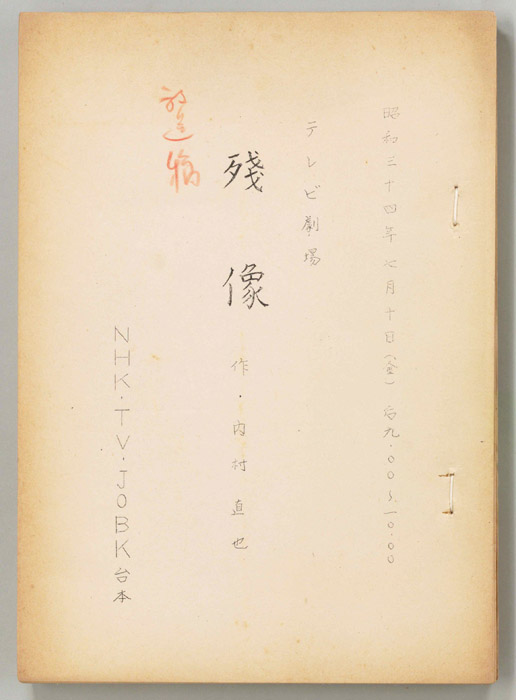 昭和三十四年七月十日(金) 后九.00〜一〇.〇〇
テレビ劇場
殘像
作・内村直也
放送稿
NHK・TV・JOBK台本